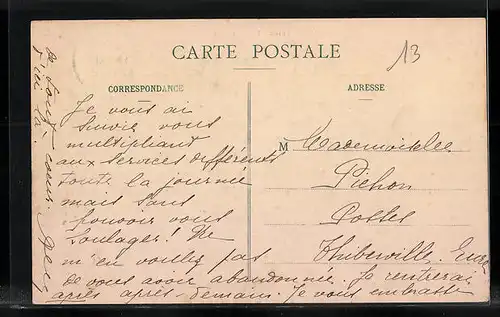 CARTE POSTALE
13
CORRESPONDANCE
ADRESSE
Je vous ai
suivie vous
multipliant
aux services différents
toute la journée
mais sans
pouvoir vous
soulager! Ne
m'en voulez pas
de vous avoir abandonnée. Je rentrerai
après après-demain. Je vous embrasse
de tout coeur.
M Mademoiselle
Pichon
Postes
Thiberville. Eure